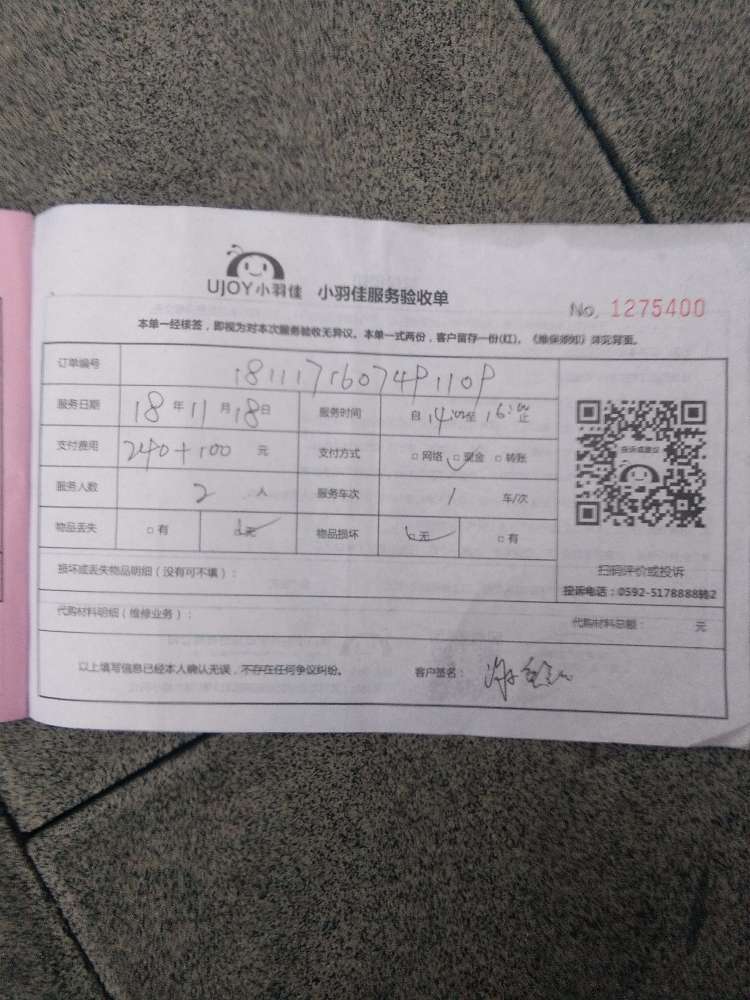 UJOY小羽佳 小羽佳服务验收单
No. 1275400
本单一经核签，即视为对本次服务验收无异议。本单一式两份，客户留存一份(红)。《维保须知》详见背面。
订单编号 18111716074P110P
服务日期 18年11月18日 服务时间 自14:00至16:00止
支付费用 240+100 元 支付方式 □网络 □现金 □转账
服务人数 2 人 服务车次 1 车/次
物品丢失 □有 □无 物品损坏 □无 □有
投诉或建议
扫码评价或投诉
投诉电话：0592-5178888转2
损坏或丢失物品明细（没有可不填）：
代购材料明细（维修业务）： 代购材料总额： 元
以上填写信息已经本人确认无误，不存在任何争议纠纷。 客户签名：